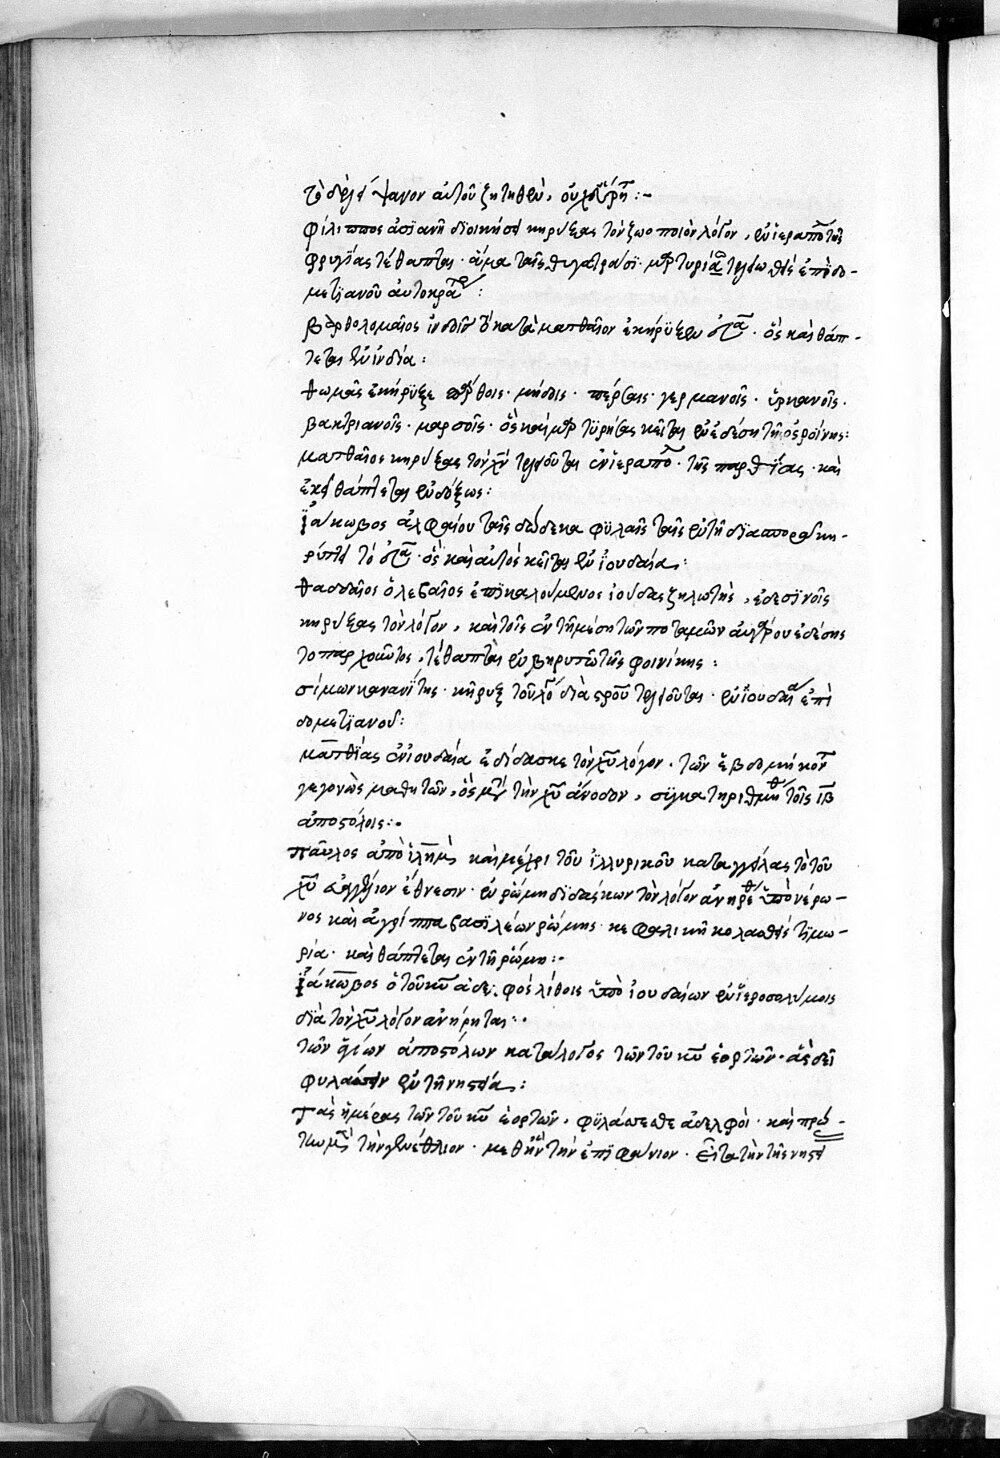 τὸ δὲ λείψανον αὐτοῦ ζητηθὲν, οὐχ εὑρέθη:-
φίλιππος ἀσϊανῆ διοικήσει κηρύξας τὸν ζωοποιὸν λόγον, ἐν ἱεραπόλει τῆς
φρυγίας τέθαπται· ἅμα ταῖς θυγατράσϊ· μαρτυρία τελειωθεὶς ἐπὶ δο-
μετϊανοῦ αὐτοκράτορος:
βαρθολομαῖος ἰνδοῖς τὸ κατὰ ματθαῖον ἐκήρυξεν εὐαγγέλιον· ὃς καὶ θάπ-
τεται ἐν ἰνδία:
θωμᾶς ἐκήρυξε πάρθοις· μήδοις· πέρσαις· γερμανοῖς· ὑρκανοῖς·
βακτριανοῖς· μαρσοῖς· ὃς καὶ μαρτυρήσας κεῖται ἐν ἐδέση τῆς ὀσροίνης:
ματθαῖος κηρύξας τὸν χν τελειοῦται ἐν ἱεραπόλει· τῆς παρθίας· καὶ
ἐκεῖ θάπτεται ἐνδόξως:
ϊάκωβος ἀλφαίου ταῖς δώδεκα φυλαῖς ταῖς ἐν τῆ διασπορᾶ κη-
ρύττει τὸ εὐαγγέλιον· ὃς καὶ αὐτὸς κεῖται ἐν ἰουδαία:
θαδδαῖος ὁ λεβαῖος ἐπϊκαλούμενος ἰούδας ζηλωτὴς, ἐδεσϊνοῖς
κηρύξας τὸν λόγον, καὶ τοῖς ἐν τῆ μέση τῶν ποταμῶν αὐγάρου ἐδέσης
τοπαρχοῦντος, τέθαπται ἐν βηρυτῶ τῆς φοινίκης:
σίμων κανανίτης· κῆρυξ τοῦ χυ διὰ σροῦ τελειοῦται· ἐν ϊουδαία ἐπὶ
δομετϊανοῦ:
ματθίας ἐν ἰουδαία ἐδίδασκε τὸν χυ λόγον· τῶν ἑβδομήκοντα
γεγονὼς μαθητῶν, ὃς μετὰ τὴν χυ ἄνοδον, συγκατηριθμήθη τοῖς ιβ
ἀποστόλοις:·
παῦλος ἀπὸ ιλημ καὶ μέχρι τοῦ ἰλλυρικοῦ καταγγείλας τὸ τοῦ
χυ εὐαγγέλιον ἔθνεσιν· ἐν ῥώμη διδάσκων τὸν λόγον ἀνηρέθη ὑπὸ νέρω-
νος καὶ ἀγρίππα βασϊλέων ῥώμης· κεφαλικῆ κολασθεὶς τϊμω-
ρία· καὶ θάπτεται ἐν τῆ ῥώμη:-
ϊάκωβος ὁ τοῦ κυ ἀδελφὸς λίθοις ὑπὸ ἰουδαίων ἐν ἱεροσολύμοις
διὰ τὸν χυ λόγον ἀνήρηται:·
τῶν ἁγίων ἀποστόλων κατάλογος τῶν τοῦ κυ ἑορτῶν· ἃς δεῖ
φυλάττειν ἐν τῆ νηστεία:
τὰς ἡμέρας τῶν τοῦ κυ ἑορτῶν, φϋλάττεσθε ἀδελφοὶ· καὶ πρώ-
την μὲν τὴν γενέθλιον· μεθ' ἣν τὴν ἐπϊφάνιον· εἶτα τὴν τῆς νηστεί